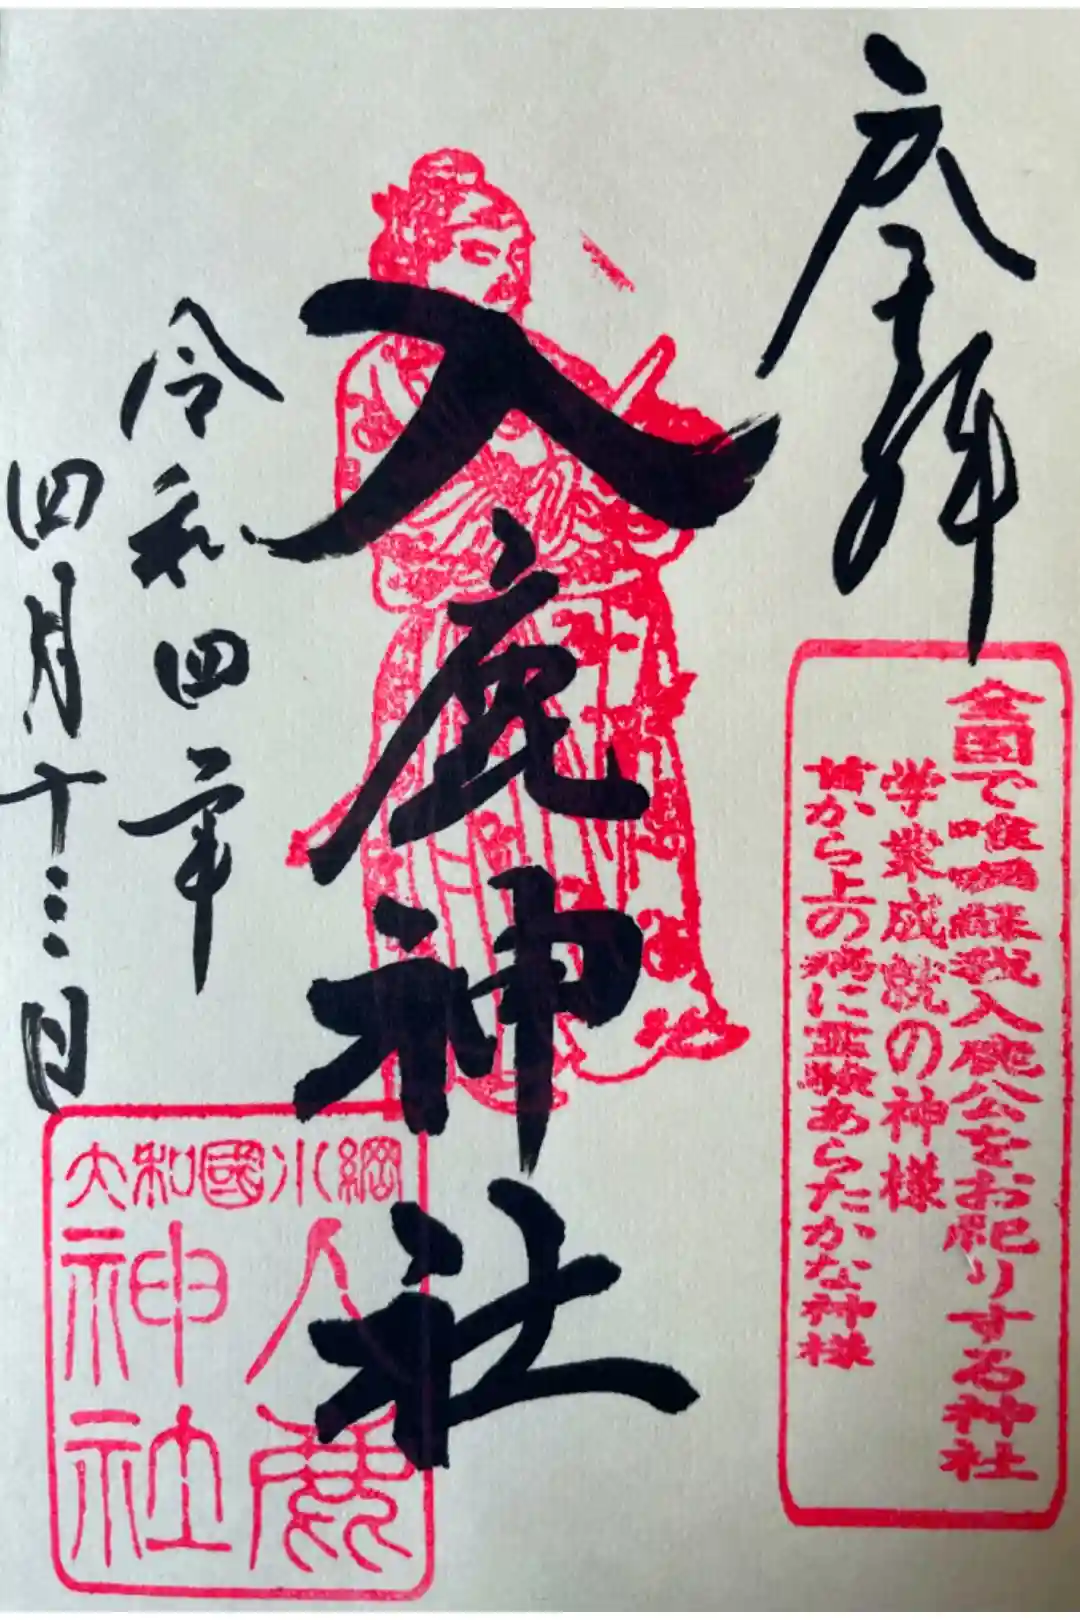 奉拝
全国で唯一蘇我入鹿公をお祀りする神社
学業成就の神様
首から上の病に霊験あらたかな神様
入鹿神社
令和四年
四月十三日
大和國小綱
入鹿
神社